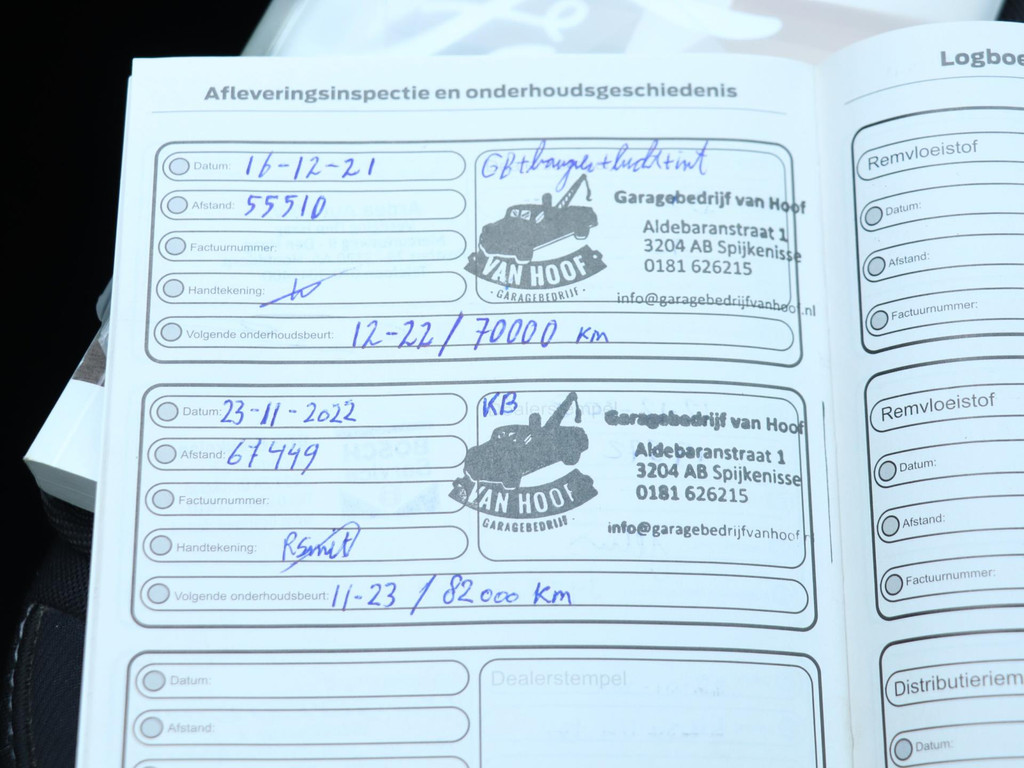 Afleveringsinspectie en onderhoudsgeschiedenis
Datum: 16-12-21
Afstand: 55510
Factuurnummer:
Handtekening:
Volgende onderhoudsbeurt: 12-22 / 70000 km
GB+bougies+lucht+int
VAN HOOF
- GARAGEBEDRIJF -
Garagebedrijf van Hoof
Aldebaranstraat 1
3204 AB Spijkenisse
0181 626215
info@garagebedrijfvanhoof.nl
Datum: 23-11-2022
Afstand: 67449
Factuurnummer:
Handtekening: RSmit
Volgende onderhoudsbeurt: 11-23 / 82000 km
KB
VAN HOOF
GARAGEBEDRIJF -
Garagebedrijf van Hoof
Aldebaranstraat 1
3204 AB Spijkenisse
0181 626215
info@garagebedrijfvanhoof
Datum:
Afstand:
Dealerstempel
Logboe
Remvloeistof
Datum:
Afstand:
Factuurnummer:
Remvloeistof
Datum:
Afstand:
Factuurnummer:
Distributieriem
Datum: